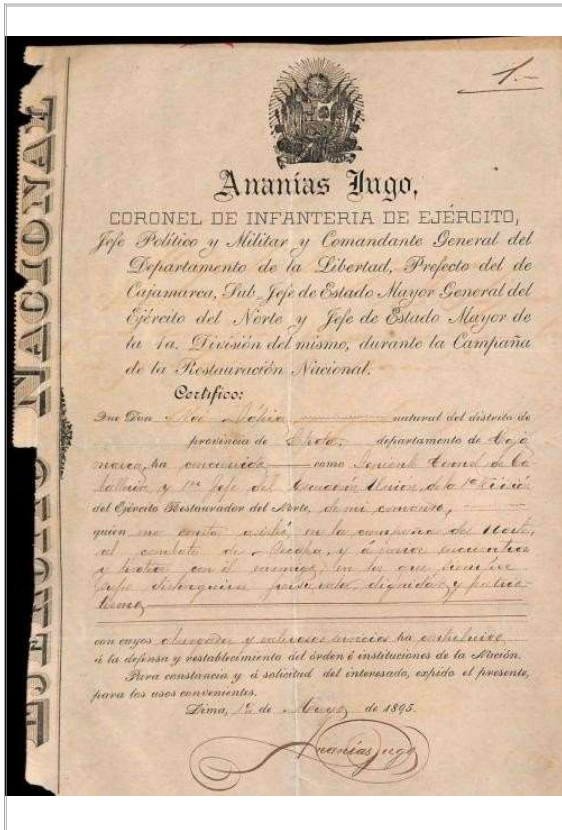 1.-
EJERCITO NACIONAL
Ananías Jugo,
CORONEL DE INFANTERIA DE EJÉRCITO,
Jefe Político y Militar y Comandante General del
Departamento de la Libertad, Prefecto del de
Cajamarca, Sub Jefe de Estado Mayor General del
Ejército del Norte y Jefe de Estado Mayor de
la 1a. División del mismo, durante la Campaña
de la Restauración Nacional.
Certifico:
Que Don natural del distrito de
provincia de Chota, departamento de Caja
marca, ha como Teniente Coronel de Ca-
ballería y 1er Jefe del Escuadrón Unión, de la 1a División
del Ejército Restaurador del Norte, de mi comando,
quien me consta asistió en la campaña del Norte,
al combate de y á varios encuentros
y con el enemigo, en los que siempre
supo distinguirse por su valor, dignidad y patrio-
tismo,
con cuyos y valiosos servicios ha contribuido
á la defensa y restablecimiento del órden é instituciones de la Nación.
Para constancia y á solicitud del interesado, expido el presente,
para los usos convenientes.
Lima, de Mayo de 1895.
Ananías Jugo